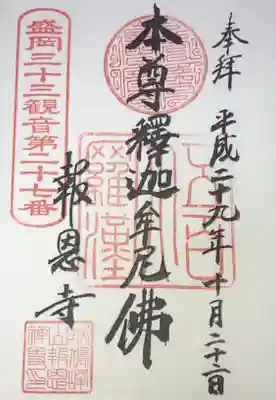 奉拝
平成二十九年十月二十二日
本尊釋迦牟尼佛
五百
羅漢
報恩寺
盛岡三十三観音第二十七番